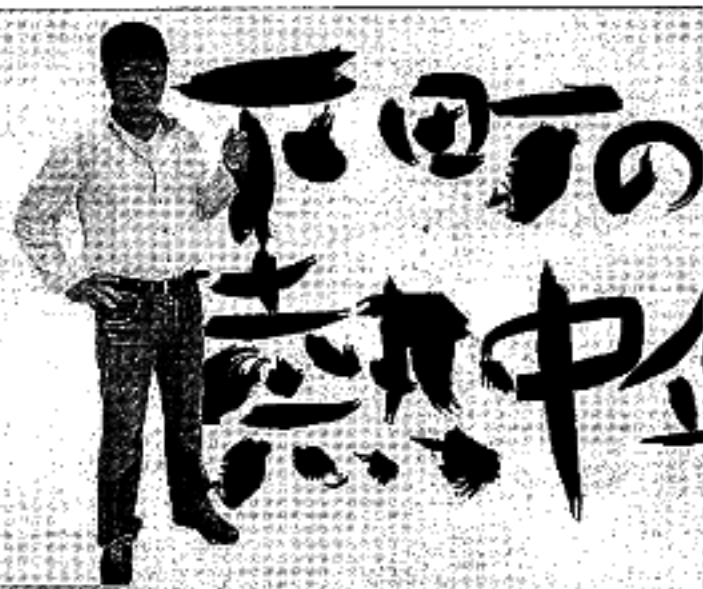 下町の
熱中